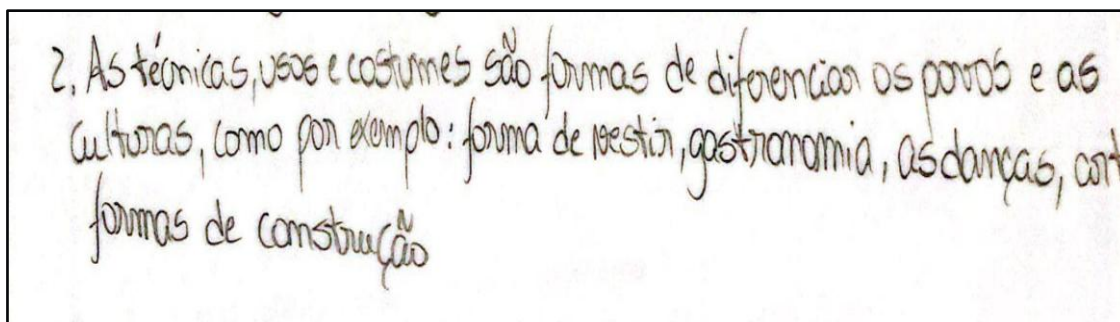 2. As técnicas, usos e costumes são formas de diferenciar os povos e as
culturas, como por exemplo: forma de vestir, gastronomia, as danças,
formas de construção